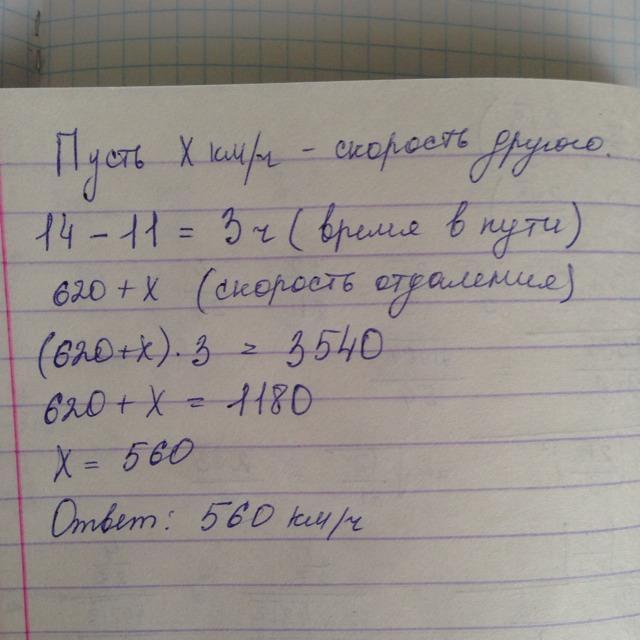 Пусть X км/ч - скорость другого.
14 - 11 = 3 ч ( время в пути)
620 + X (скорость отдаления)
(620+X) · 3 = 3540
620 + X = 1180
X = 560
Ответ: 560 км/ч